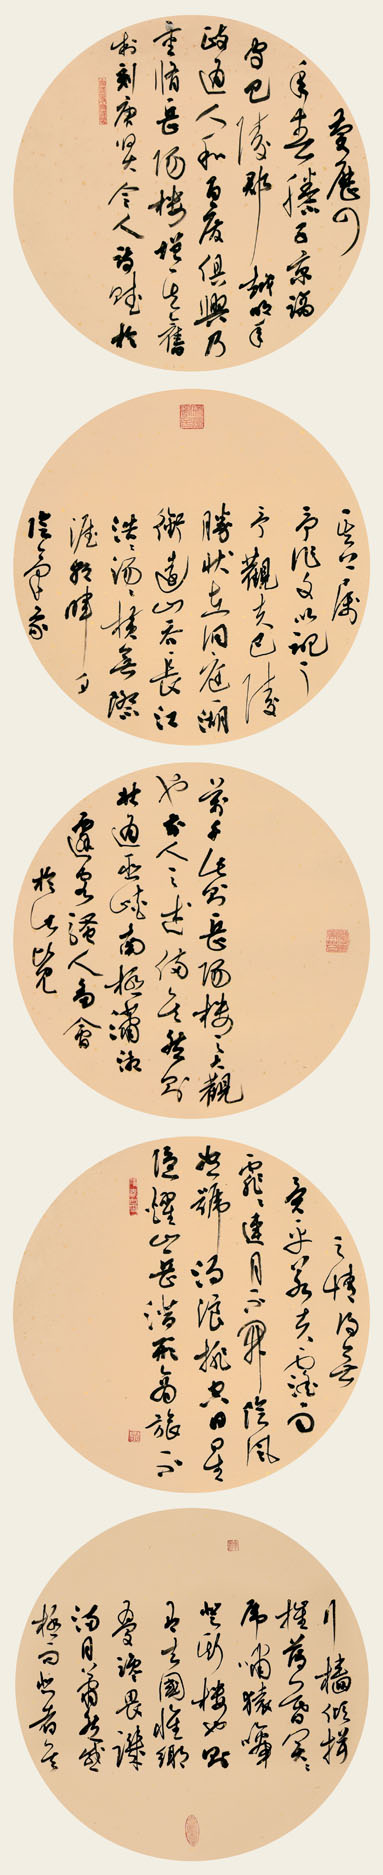 慶曆四
年春滕子京謫
守巴陵郡越明年
政通人和百廢俱興乃
重脩岳陽樓增其舊
制刻唐賢今人詩賦於
其上屬
予作文以記之
予觀夫巴陵
勝狀在洞庭湖
銜遠山吞長江
浩浩湯湯橫無際
涯朝暉夕
陰氣象
萬千此則岳陽樓之大觀
也前人之述備矣然則
北通巫峽南極瀟湘
遷客騷人多會
於此覽
之情得無
異乎若夫霪雨
霏霏連月不開陰風
怒號濁浪排空日星
隱燿山岳潛形商旅不
行檣傾楫
摧薄暮冥冥
虎嘯猿啼
登斯樓也則
有去國懷鄉
憂讒畏譏
滿目蕭然感
極而悲者矣